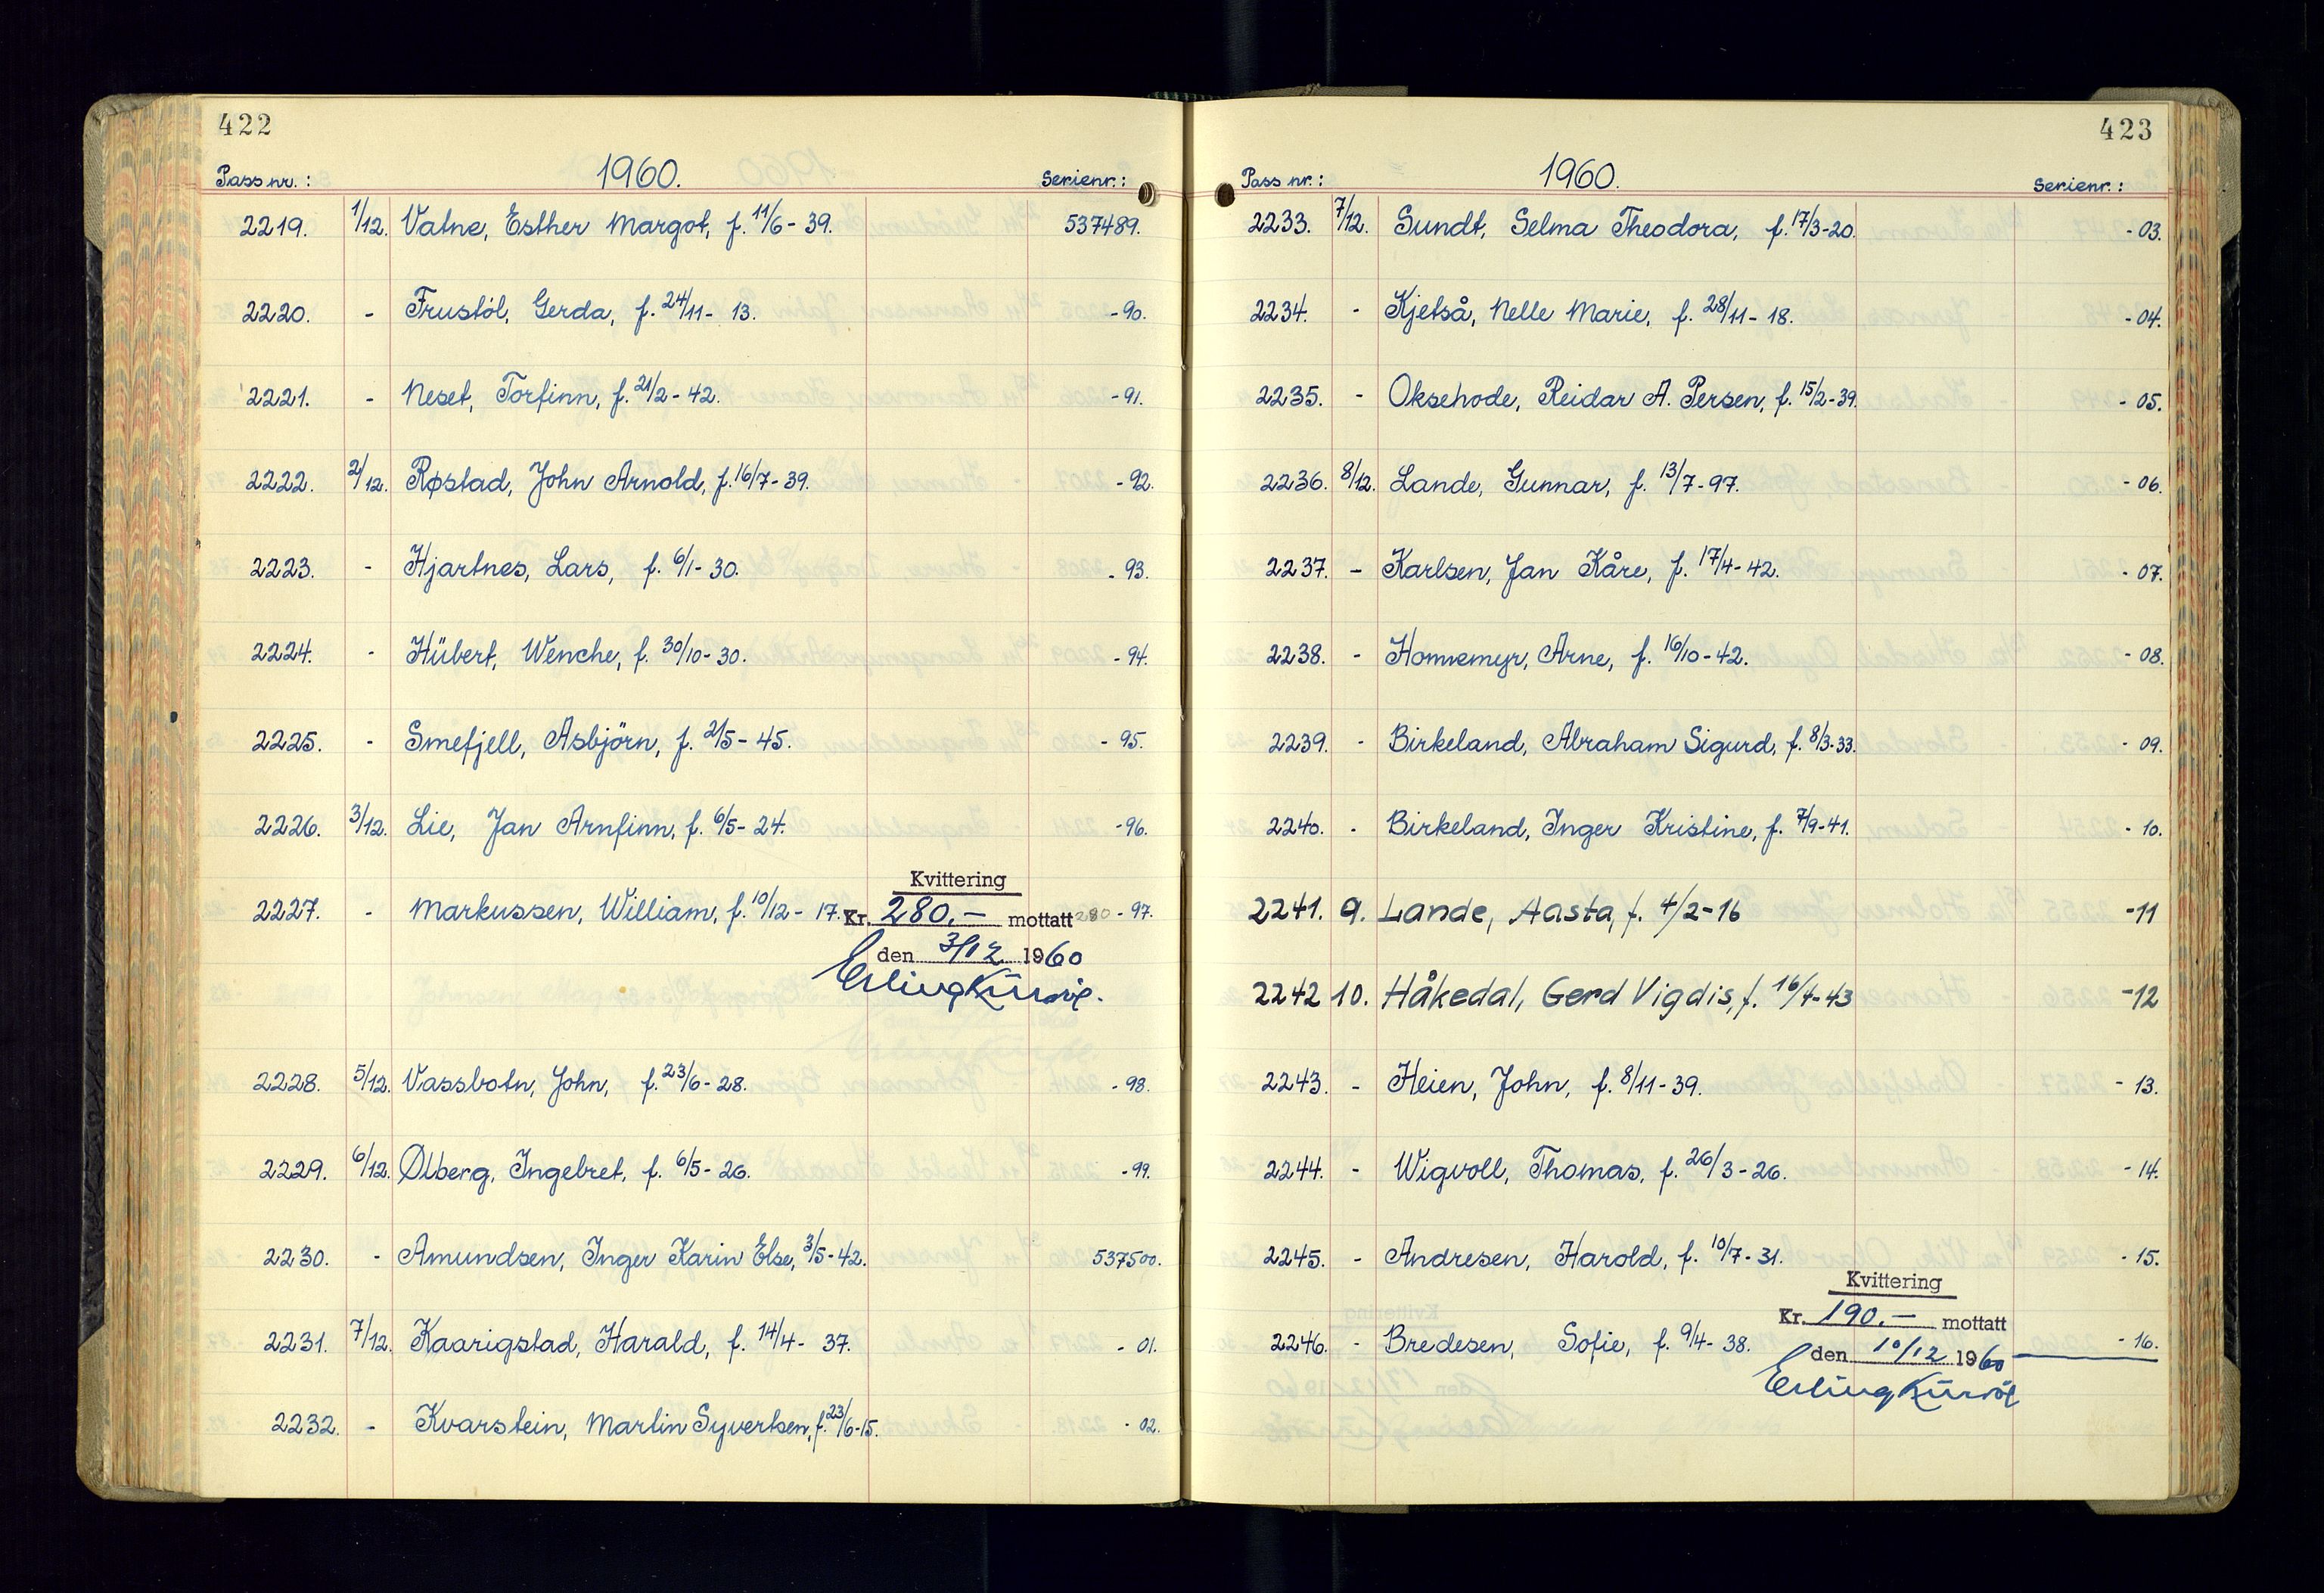 422
1960.
Pass nr.: Serienr.:
2219. 1/12. Vatne, Esther Margot, f. 11/6 - 39. 537489.
2220. - Frustöl, Gerda, f. 24/11 - 13. - 90.
2221. - Neset, Torfinn, f. 21/2 - 42. - 91.
2222. 2/12. Røstad, John Arnold, f. 16/7 - 39. - 92.
2223. - Hjartnes, Lars, f. 6/1 - 30. - 93.
2224. - Hübert, Wenche, f. 30/10 - 30. - 94.
2225. - Smefjell, Asbjörn, f. 2/5 - 45. - 95.
2226. 3/12. Lie, Jan Arnfinn, f. 6/5 - 24. - 96.
2227. - Markussen, William, f. 10/12 - 17. 280 - 97.
Kvittering
Kr. 280.- mottatt
den 3/12 1960
Erling
2228. 5/12. Vassbotn, John, f. 23/6 - 28. - 98.
2229. 6/12. Ølberg, Ingebret, f. 6/5 - 26. - 99.
2230. - Amundsen, Inger Karin Else, 3/5 - 42. 537500.
2231. 7/12. Kaarigstad, Harald, f. 14/4 - 37. - 01.
2232. - Kvarstein, Martin Syvertsen, f. 23/6 - 15. - 02.
423
1960.
Pass nr.: Serienr.:
2233. 7/12. Sundt, Selma Theodora, f. 17/3 - 20. - 03.
2234. - Kjetså, Nelle Marie, f. 28/11 - 18. - 04.
2235. - Oksehode, Reidar A. Persen, f. 15/2 - 39. - 05.
2236. 8/12. Lande, Gunnar, f. 13/7 - 97. - 06.
2237. - Karlsen, Jan Kåre, f. 17/4 - 42. - 07.
2238. - Homnemyr, Arne, f. 16/10 - 42. - 08.
2239. - Birkeland, Abraham Sigurd, f. 8/3 - 33. - 09.
2240. - Birkeland, Inger Kristine, f. 7/9 - 41. - 10.
2241. 9. Lande, Aasta, f. 4/2 - 16 - 11
2242 10. Håkedal, Gerd Vigdis, f. 16/4 - 43 - 12
2243. - Heien, John, f. 8/11 - 39. - 13.
2244. - Wigvoll, Thomas, f. 26/3 - 26. - 14.
2245. - Andresen, Harold, f. 10/7 - 31. - 15.
2246. - Bredesen, Sofie, f. 9/4 - 38. - 16.
Kvittering
Kr. 190.- mottatt
den 10/12 1960
Erling